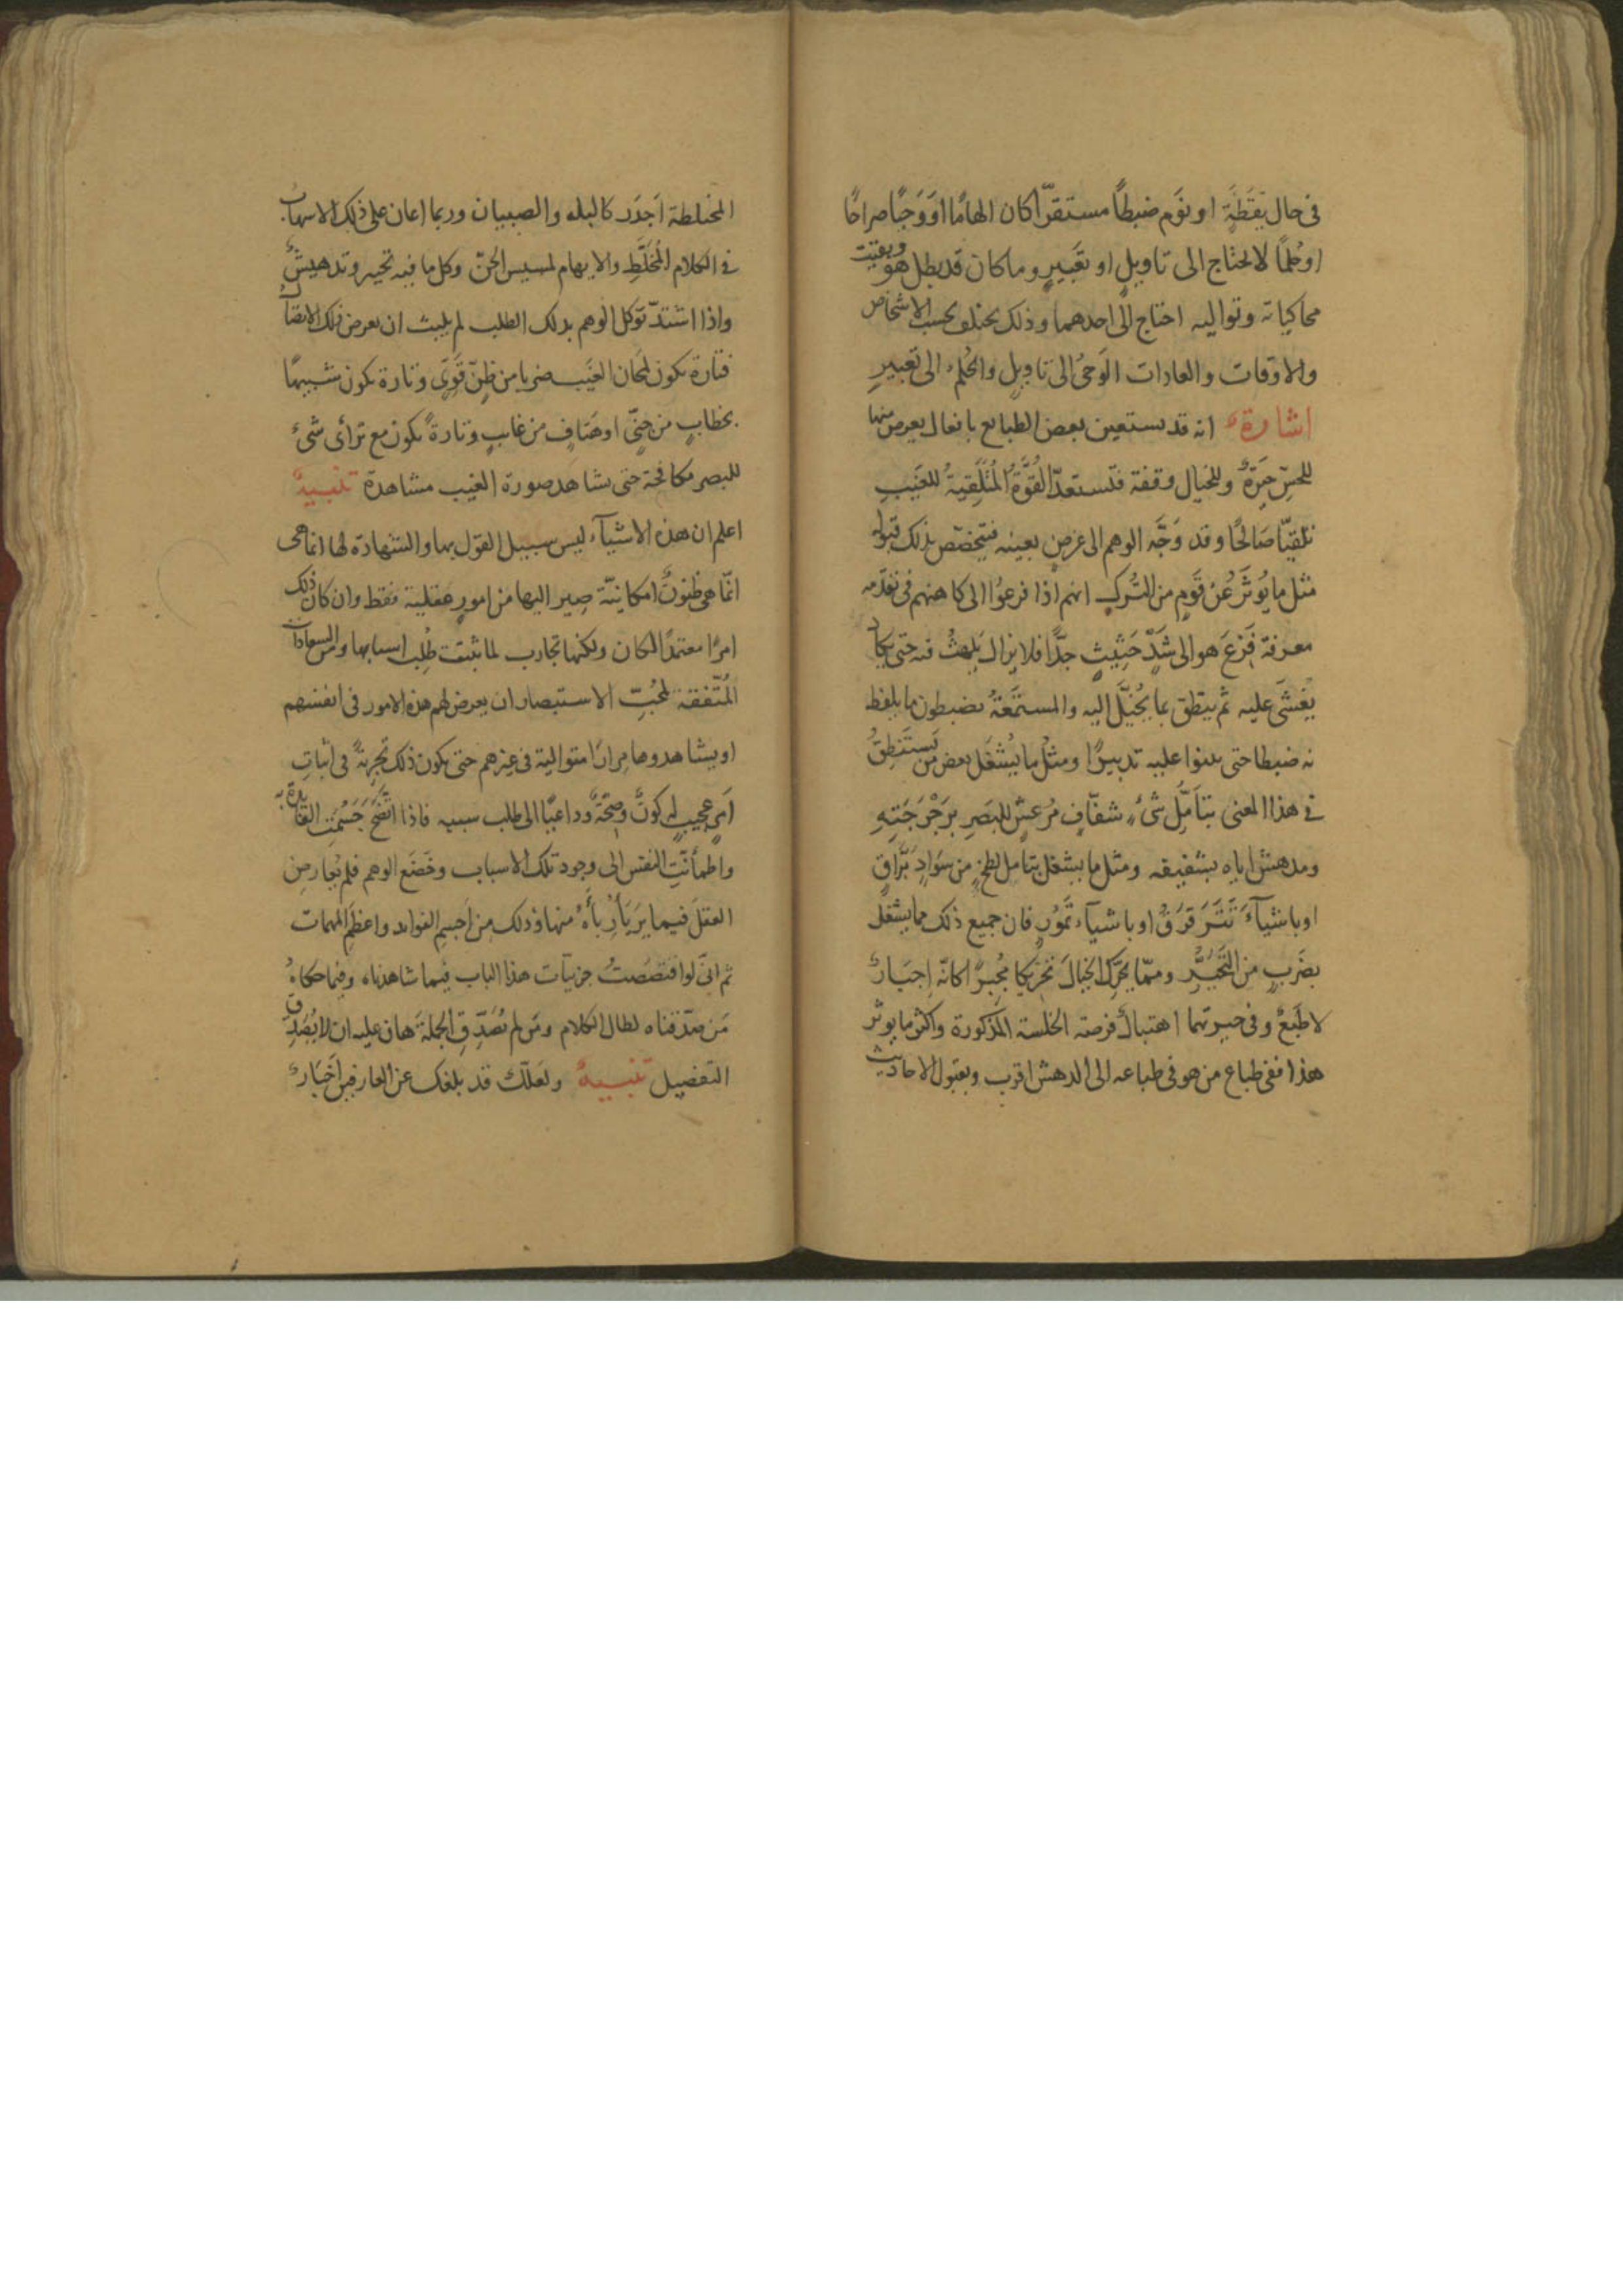 فى حال يقظة او نوم ضبطاً مستقرّا كان الهامًا او وَحيًا صراحًا
او حُلمًا لا يحتاج الى تاويلٍ او تعبيرٍ وما كان قد بطل هُو وبقيت
محاكياته وتواليه احتاج الى احدهما وذلك يختلف بحسب الاشخاص
والاوقات والعادات الوَحىُ الى تاويلٍ والحُلم الى تعبيرٍ
اشارة انه قد يستعين بعض الطبايع بافعال يعرض منها
للحسّ حَيرةٌ وللخيال وقفة فتستعدّ القُوَّةُ المُتَلَقِّيةُ للغَيبِ
تلقيًّا صَالحًا وقد وَجَّه الوهم الى غرضٍ بعينه فيتخصّص بذلك قبوله
مثل ما يُوثَرُ عَن قَومٍ من التُركِ انهم اذا فزعُوا الى كاهنهم فى تقدمه
معرفة فَزعَ هو الى شَدٍّ حَثِيثٍ جدًّا فلا يزال يَلهثُ فيه حتى يكاد
يُغشَى عليه ثم ينطق بما يُخيَّل اليه والمستمعَةُ يضبطون ما يلفظ
به ضبطا حتى يبنوا عليه تدبيرًا ومثلُ ما يُشغَل بعض من يُستَنطَقُ
فى هذا المعنى بتأمّلِ شىءٍ شفّافٍ مُرعشٍ للبَصَرِ برَجْرَجَتِهِ
ومدهشٍ اياه بشفيفه ومثل ما يشغل بتامل لطخٍ من سَوادٍ بَرّاقٍ
او باشيآءَ تَتَرَقرَقُ او باشيآء تَمُورُ فان جميع ذلك مما يشغلُ
بضَربٍ من التحيُّرِ وممّا يحرّك الخيالَ تحريكا مُحيِّرًا كانّه اِجبَارٌ
لا طَبعٌ وفى حيرتهما اهتبالُ فرصة الخلسة المذكورة واكثر ما يوثر
هذا ففى طباع من هو فى طباعه الى الدهش اقرب وبقبول الاحاديث
المختلطة اَجدَر كالبله والصبيان وربما اعان على ذلك الاسهاب
فى الكلام المُخَلّطِ والايهام لمسيس الجنّ وكل ما فيه تحيير وتدهيشٌ
واذا اشتدّ توكل الوهم بذلك الطلب لم يلبث ان يعرض ذلك الاتصال
فتارة يكون لمحان الغيَب ضربا من ظنٍّ قَوِىٍّ وتارة يكون شبيهًا
بخطابٍ من جنّىٍّ او هتافٍ من غايبٍ وتارةً يكون مع تراَى شىءٍ
للبصر مكافحة حتى تشاهَد صورة الغيب مشاهدة تنبيهٌ
اعلم ان هذه الاشيآء ليس سبيل القول بها والشهادة لها انما هى
انّما هى ظنونٌ امكانيّة صِير اليها من امورٍ عقلية فقط وان كان ذلك
امرًا معتمدًا لو كان ولكنها تجارب لما ثبتت طُلِب اسبابها ومن السعادات
المُتّفقة لمُحبّى الاستبصار ان يعرض لهم هذه الامور فى انفسهم
او يشاهدوها مِرارًا متوالية فى غيرهم حتى يكون ذلك تجربةً فى اثباتِ
اَمرٍ عجيبٍ له كونٌ وصِحّةٌ وداعيًا الى طلب سببه فاذا اتّضَحَ جَسُمَتِ الفائدة به
واطمأنّتِ النفس الى وجود تلك الاسباب وخَضَع الوهم فلم يُعارضِ
العقلَ فيما يَربَأُ رَبأَهُ منها وذلك من اَجسمِ الفوايد واعظمِ المهمات
ثم انّى لو اقتصَصتُ جزئيآت هذا الباب فيما شاهدناه وفيما حكاهُ
مَن صدّقناه لطال الكلام ومَن لم يُصَدِّقِ الجملةَ هان عليه ان لا يُصَدِّقَ
التفصيل تنبيهٌ ولعَلّكَ قد بلغك عن العارفين اَخبَارٌ